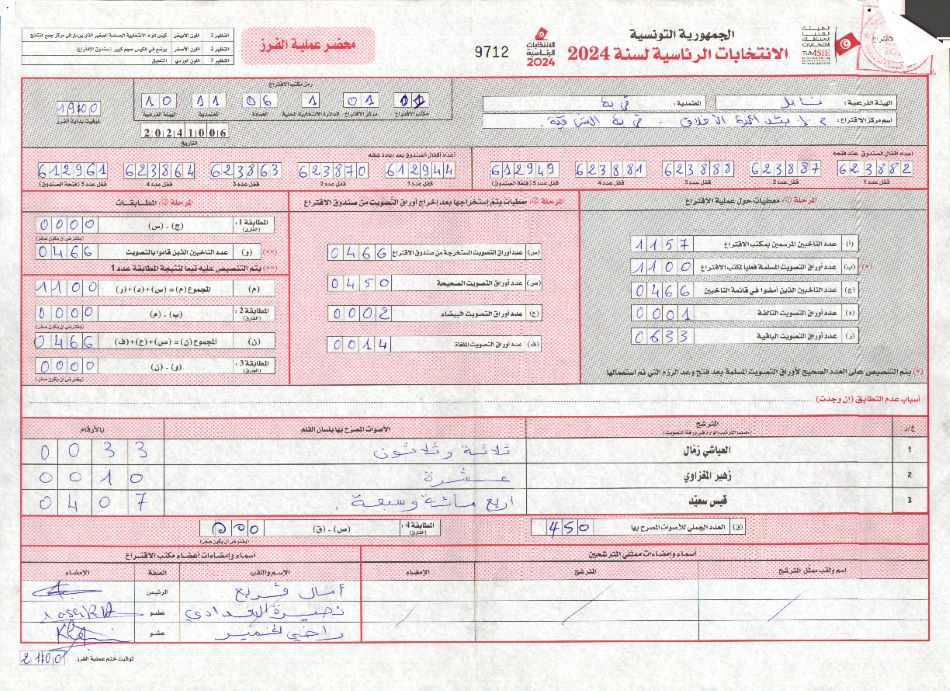 الجمهورية التونسية
الانتخابات الرئاسية لسنة 2024
الانتخابات الرئاسية 2024
9712
محضر عملية الفرز
الهيئة الفرعية: نابل
المعتمدية: قربة
اسم مركز الاقتراع:
رمز مكتب الاقتراع
11 01 1 06 11 10
مكتب الاقتراع مركز الاقتراع الدائرة الانتخابية المحلية العمادة المعتمدية الهيئة الفرعية
19:00
توقيت بداية الفرز
20241006
التاريخ
أعداد أقفال الصندوق عند فتحه
623882 623887 623888 623881 612949
قفل عدد 1 قفل عدد 2 قفل عدد 3 قفل عدد 4 قفل عدد 5 (فتحة الصندوق)
أعداد أقفال الصندوق بعد إعادة غلقه
612944 623870 623863 623864 612961
قفل عدد 1 قفل عدد 2 قفل عدد 3 قفل عدد 4 قفل عدد 5 (فتحة الصندوق)
المرحلة 1: معطيات حول عملية الاقتراع
(أ) عدد الناخبين المرسمين بمكتب الاقتراع 1157
(ب) عدد أوراق التصويت المسلمة فعليا لمكتب الاقتراع 1100 (*)
(ج) عدد الناخبين الذين أمضوا في قائمة الناخبين 0466
(د) عدد أوراق التصويت التالفة 0001
(ر) عدد أوراق التصويت الباقية 0633
(*) يتم التنصيص على العدد الصحيح لأوراق التصويت المسلمة بعد فتح وعد الرزم التي تم استعمالها
المرحلة 2: معطيات يتم إستخراجها بعد إخراج أوراق التصويت من صندوق الاقتراع
(س) عدد أوراق التصويت المستخرجة من صندوق الاقتراع 0466
(ص) عدد أوراق التصويت الصحيحة 0450
(ع) عدد أوراق التصويت البيضاء 0002
(ف) عدد أوراق التصويت الملغاة 0014
المرحلة 3: المطابقات
المطابقة 1: (الفارق) (ج) - (س) 0000
(يفترض أن يكون صفر)
(و) عدد الناخبين الذين قاموا بالتصويت 0466 (**)
(**) يتم التنصيص عليه تبعا لنتيجة المطابقة عدد 1
(م) المجموع (م) = (س) + (د) + (ر) 1100
المطابقة 2: (الفارق) (ب) - (م) 0000
(يفترض أن يكون صفر)
(ن) المجموع (ن) = (ص) + (ع) + (ف) 0466
المطابقة 3: (الفارق) (و) - (ن) 0000
(يفترض أن يكون صفر)
أسباب عدم التطابق (إن وجدت)
ع/ر المترشح الأصوات المصرح بها بلسان القلم بالأرقام
(حسب الترتيب الوارد في ورقة التصويت)
1 العياشي زمّال ثلاثة وثلاثون 0033
2 زهير المغزاوي عشرة 0010
3 قيس سعيّد اربع مائة وسبعة 0407
(ق) العدد الجملي للأصوات المصرح بها 450
المطابقة 4: (الفارق) (ص) - (ق) 000
(يفترض أن يكون صفر)
أسماء وإمضاءات ممثلي المترشحين
اسم ولقب ممثل المترشح المترشح الإمضاء
أسماء وإمضاءات أعضاء مكتب الاقتراع
الإسم واللقب الصفة الإمضاء
الرئيس
نصيرة البغدادي عضو
عضو
توقيت ختم عملية الفرز